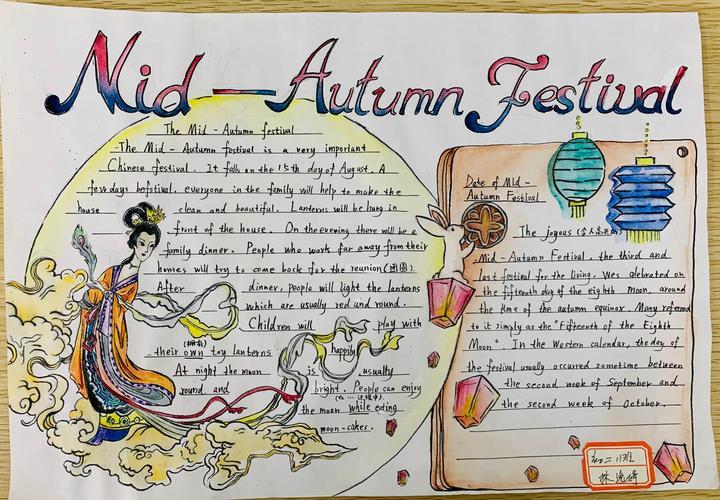 Mid-Autumn Festival
The Mid-Autumn festival
The Mid-Autumn festival is a very important
Chinese festival. It falls on the 15th day of August. A
few days befstival. everyone in the family will help to make the
house clean and beautiful. Lanterns will be hung in
front of the house. On the evening there will be a
family dinner. People who work far away from their
homes will try to come back for the reunion(团圆).
After dinner, people will light the lanterns
which are usually red and round.
Children will play with
(拥有)
their own toy lanterns happily
At night the moon is usually
round and bright. People can enjoy
the moon while eating
moon-cakes.
Date of Mid-
Autumn Festival
The Joyous
Mid-Autumn Festival, the third and
last festival for the living, was celebrated on
the fifteenth day of the eighth moon, around
the time of the autumn equinox. Many referred
to it simply as the "Fifteenth of the Eighth
Moon". In the Western calendar, the day of
the festival usually occurred sometime between
the second week of September and
the second week of October.
初二11班